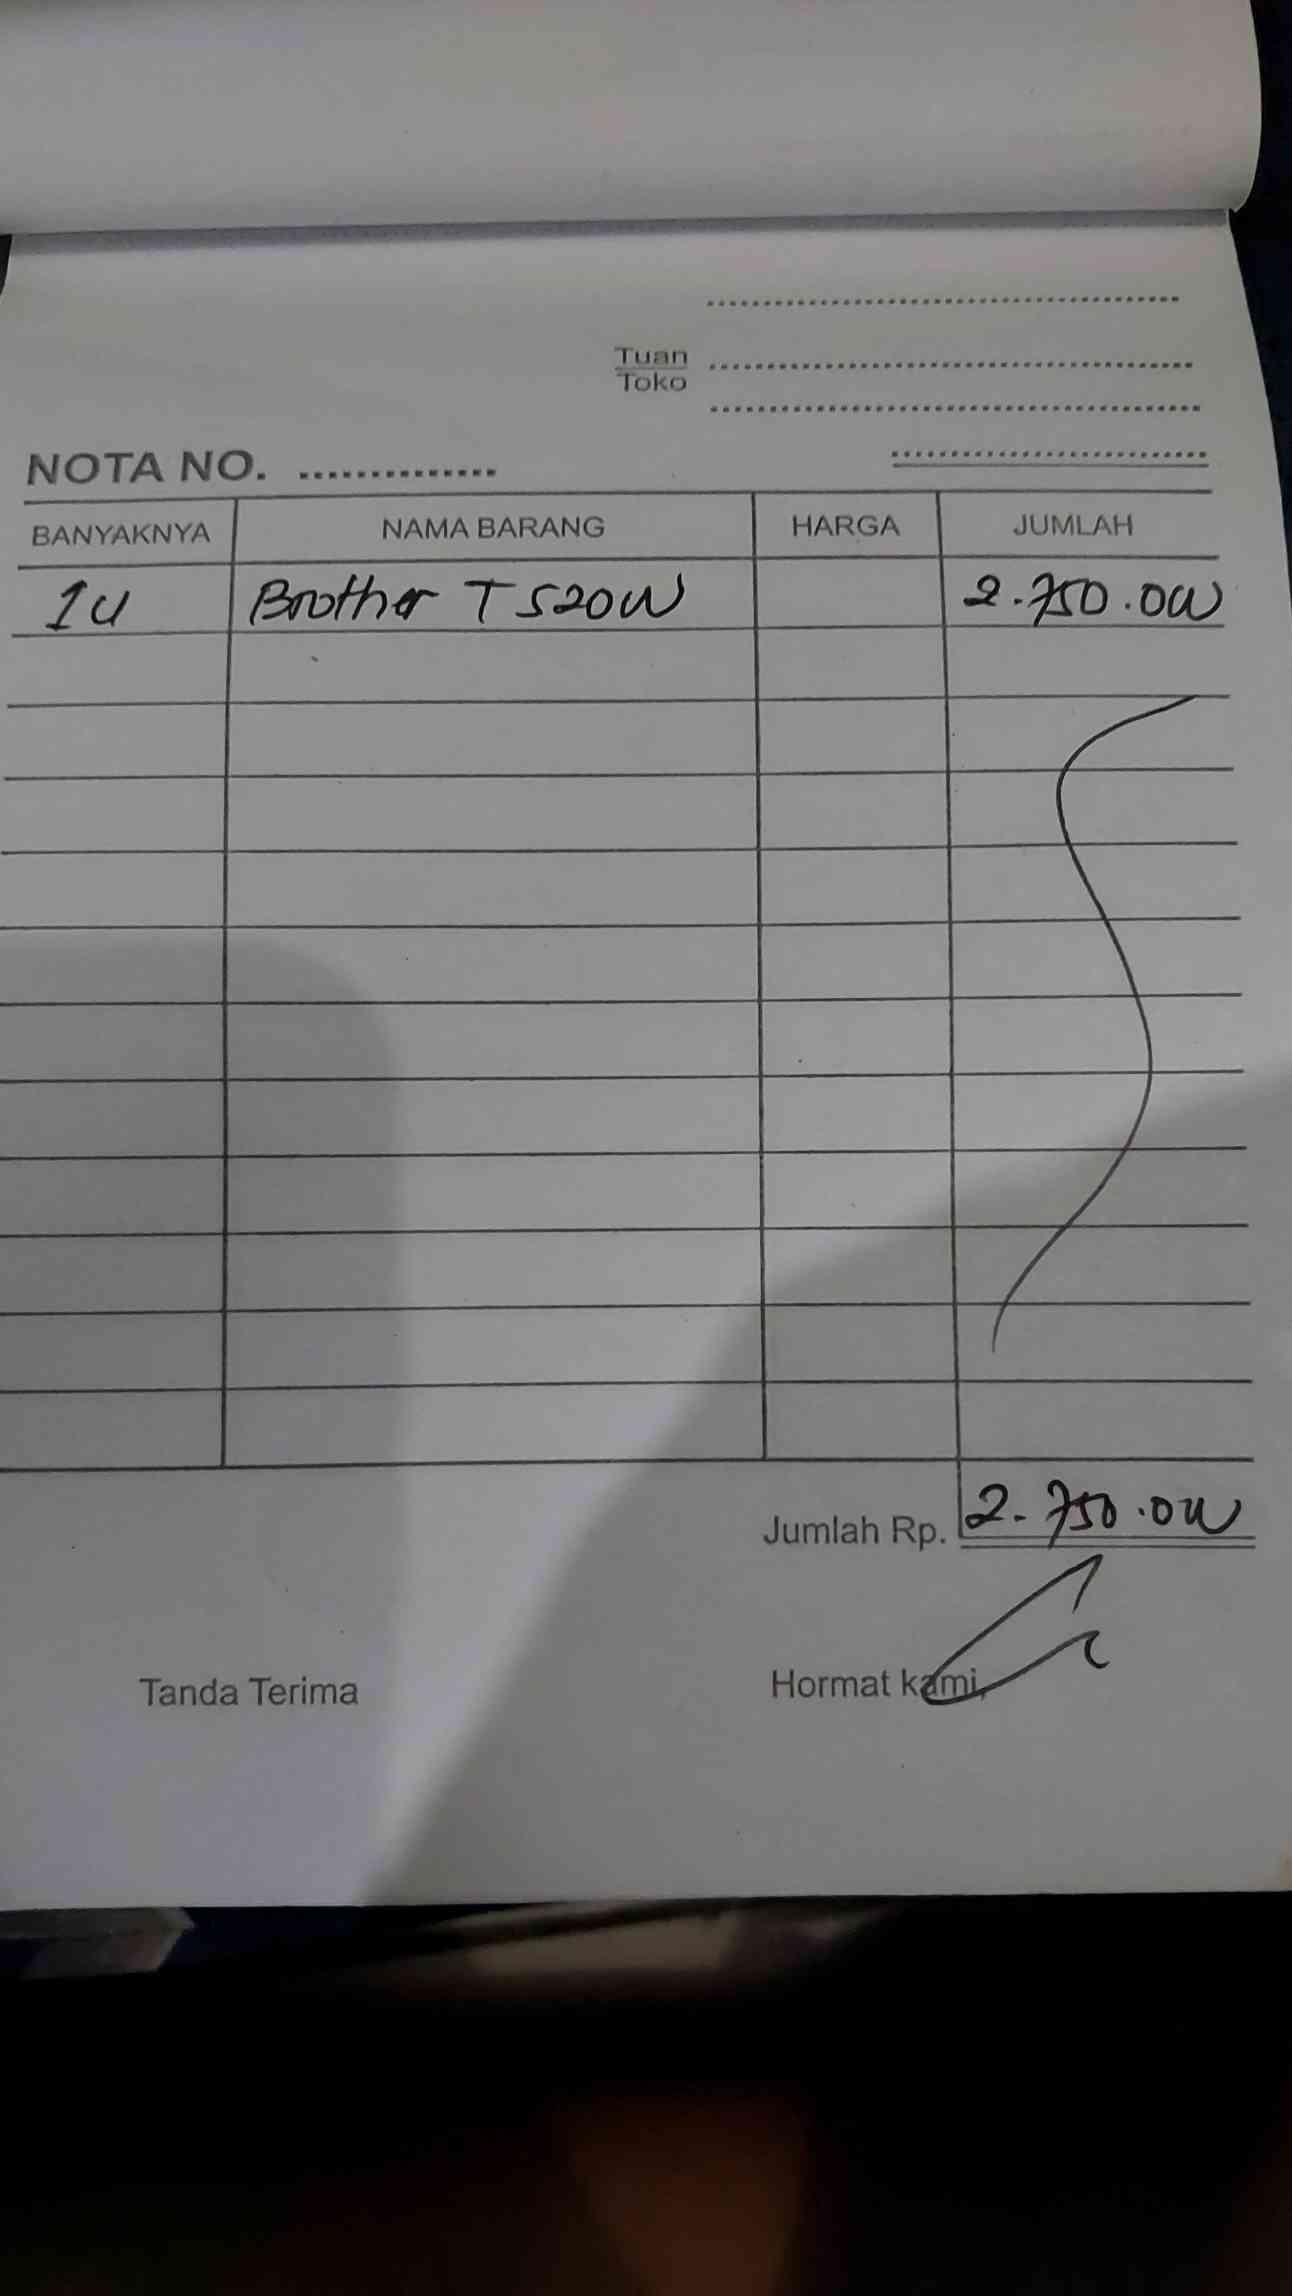 Tuan
Toko
NOTA NO. ..............
BANYAKNYA NAMA BARANG HARGA JUMLAH
1U Brother T520W 2.750.000
Jumlah Rp. 2.750.000
Tanda Terima Hormat kami,